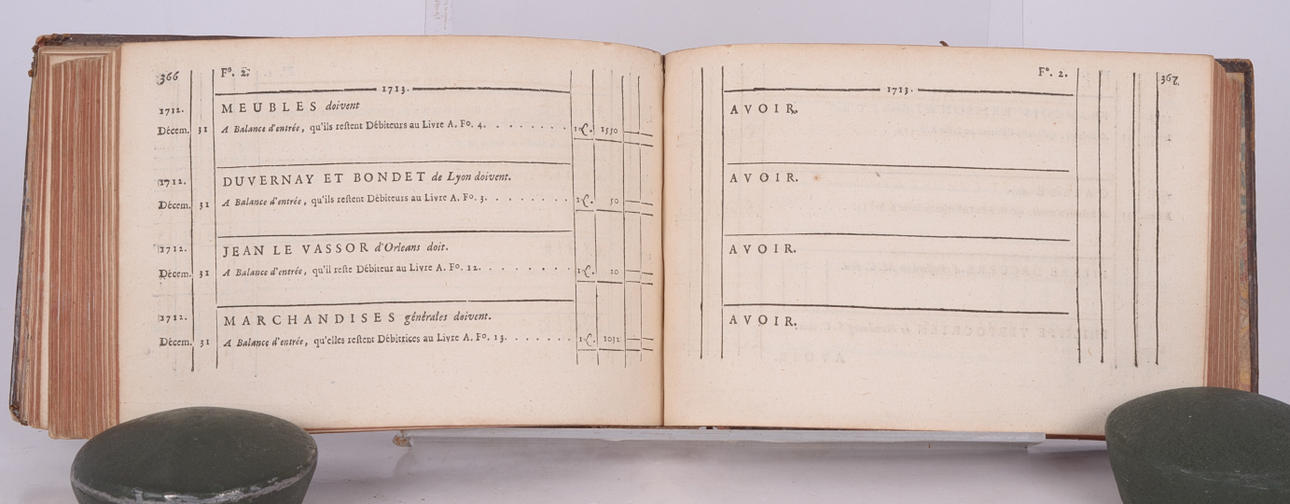 366 Fº. 2.
1713.
1712. MEUBLES doivent
Décem. 31 A Balance d'entrée, qu'ils restent Débiteurs au Livre A. Fo. 4. 1550
1712. DUVERNAY ET BONDET de Lyon doivent.
Décem. 31 A Balance d'entrée, qu'ils restent Débiteurs au Livre A. Fo. 3. 50
1712. JEAN LE VASSOR d'Orleans doit.
Décem. 31 A Balance d'entrée, qu'il reste Débiteur au Livre A. Fo. 12. 20
1712. MARCHANDISES générales doivent.
Décem. 31 A Balance d'entrée, qu'elles restent Débitrices au Livre A. Fo. 13. 1032
Fº. 2. 367
1713.
AVOIR.
AVOIR.
AVOIR.
AVOIR.